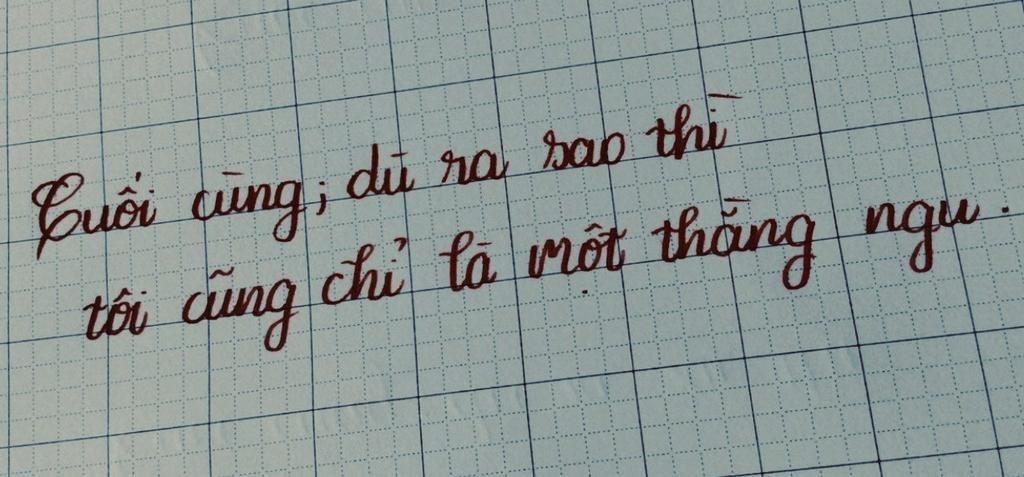 Cuối cùng; dù ra sao thì
tôi cũng chỉ là một thằng ngu.